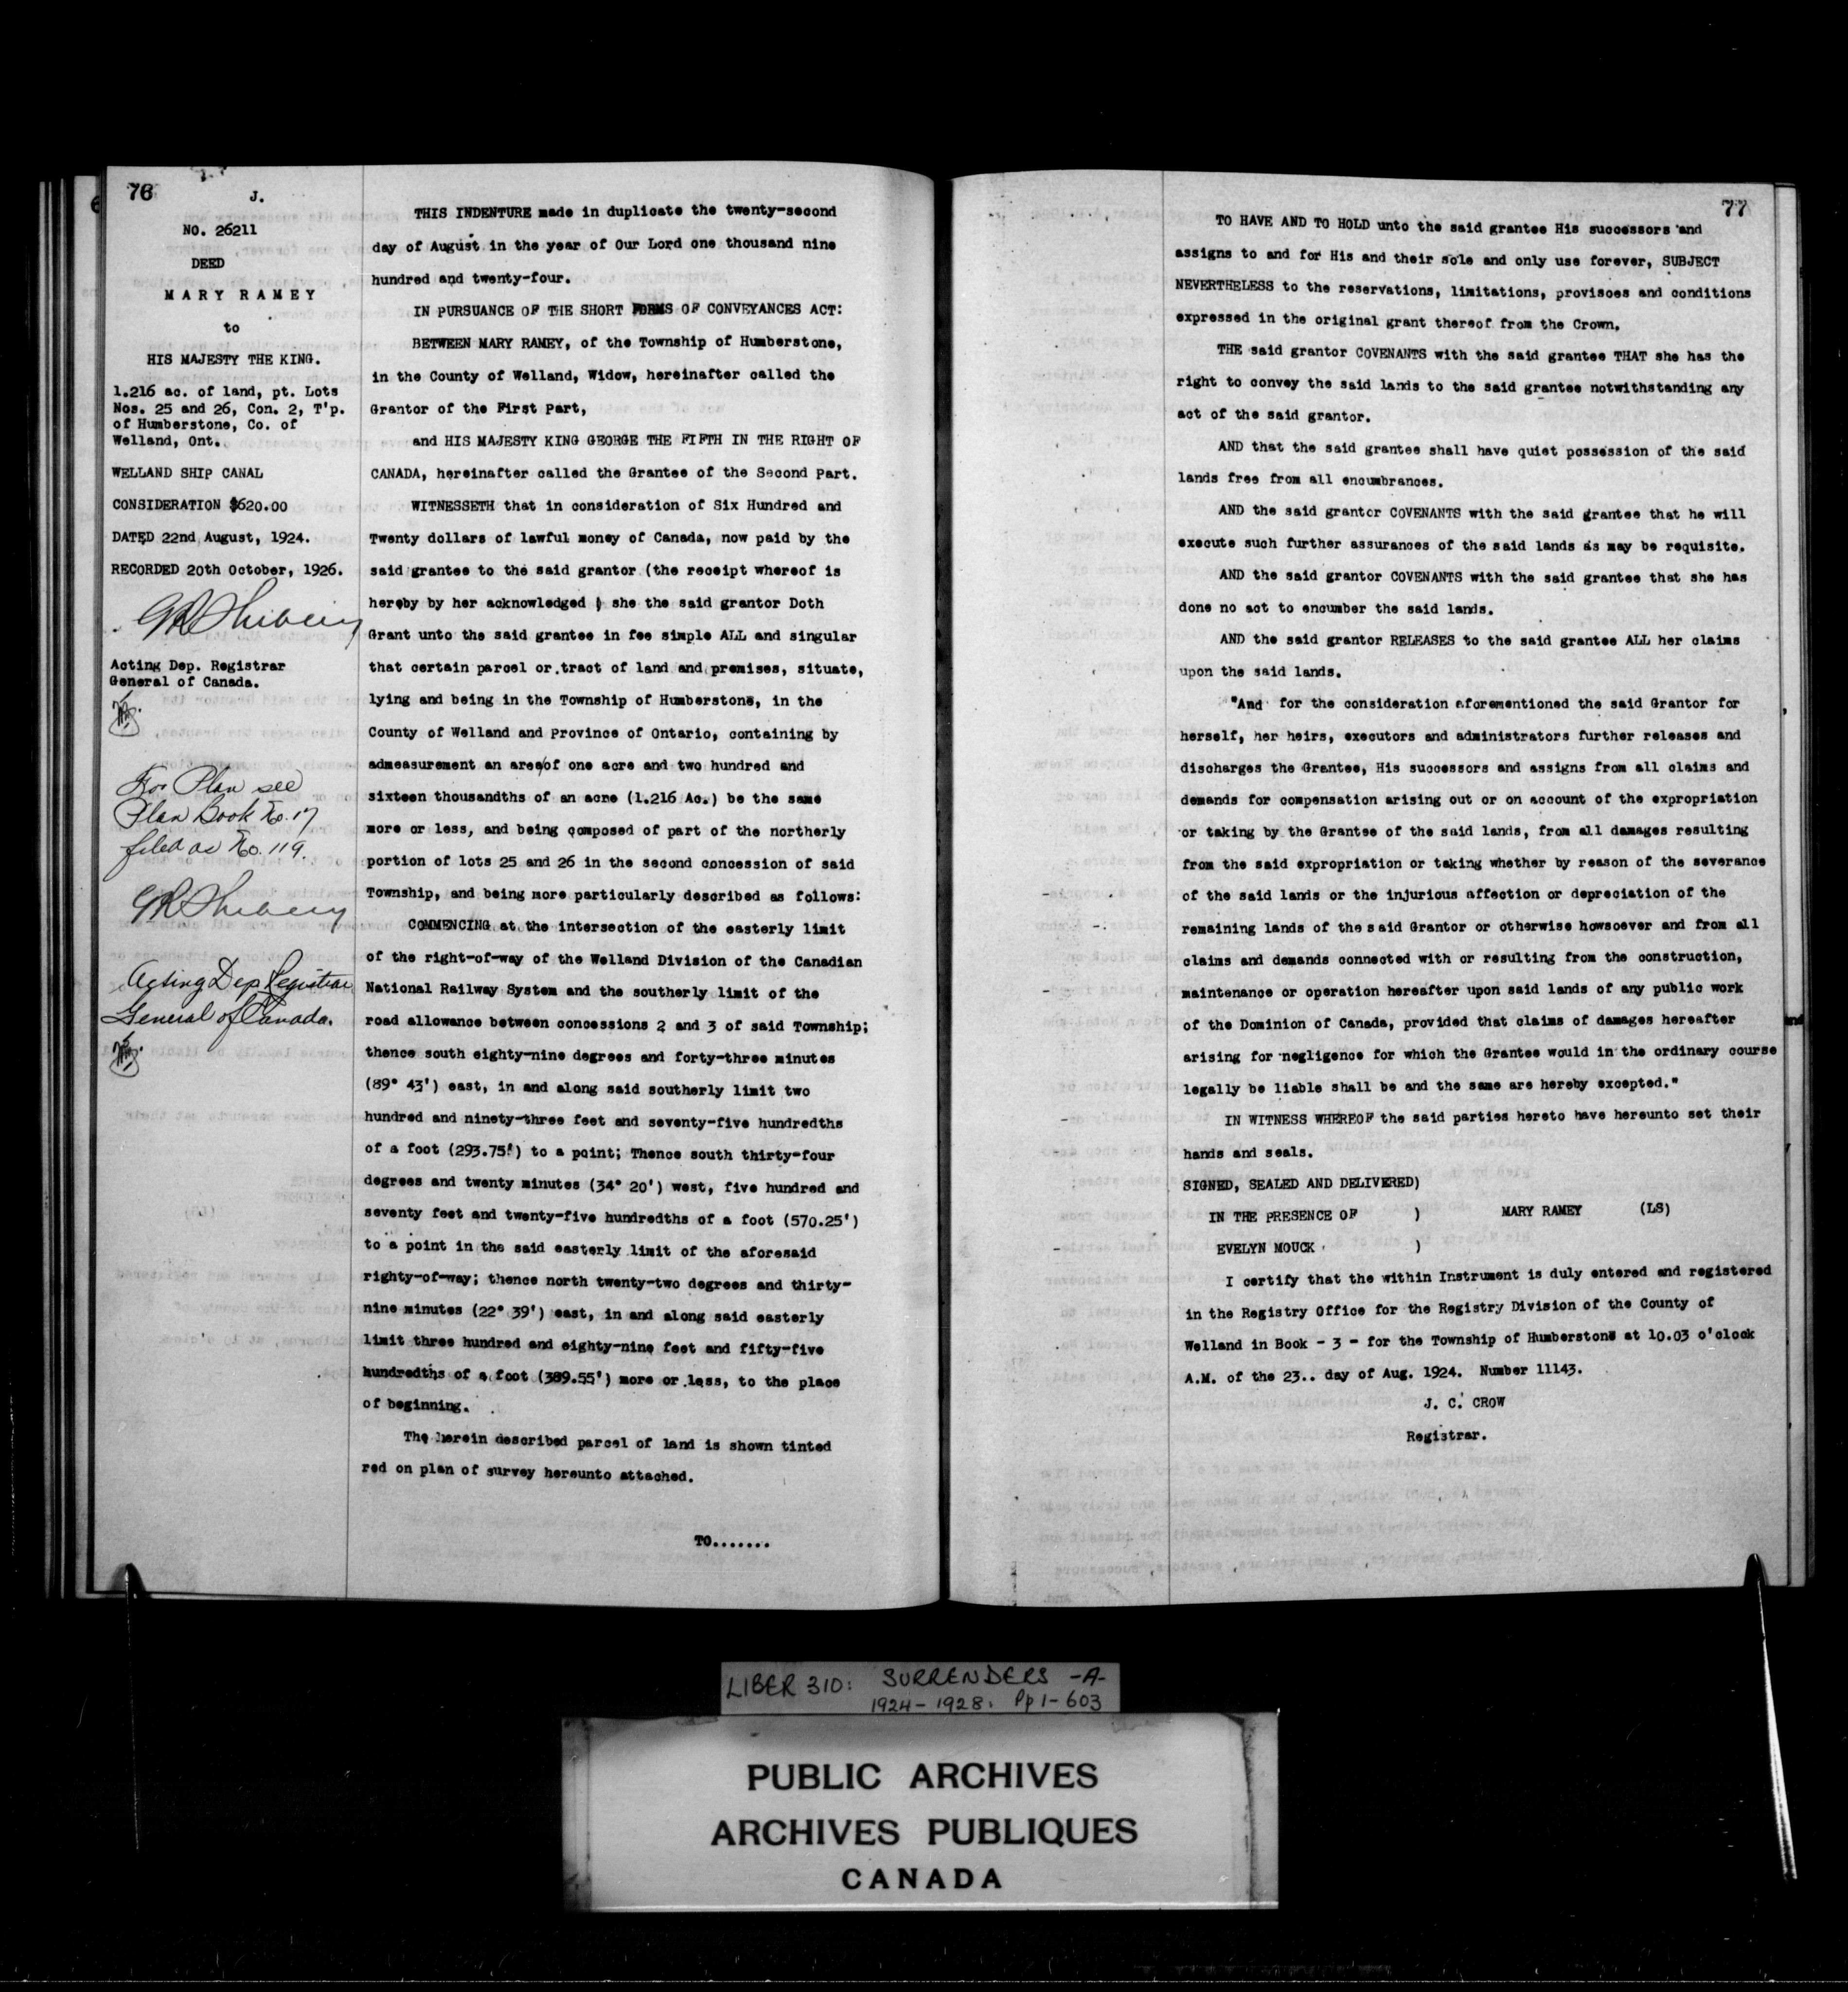 76
J.
NO. 26211
DEED
MARY RAMEY
to
HIS MAJESTY THE KING.
1.216 ac. of land, pt. Lots
Nos. 25 and 26, Con. 2, T'p.
of Humberstone, Co. of
Welland, Ont.
WELLAND SHIP CANAL
CONSIDERATION $620.00
DATED 22nd August, 1924.
RECORDED 20th October, 1926.
Acting Dep. Registrar
General of Canada.
For Plan see
Plan Book No. 17
filed as No. 119.
Acting Dep Registrar
General of Canada.
THIS INDENTURE made in duplicate the twenty-second
day of August in the year of Our Lord one thousand nine
hundred and twenty-four.
IN PURSUANCE OF THE SHORT FORMS OF CONVEYANCES ACT:
BETWEEN MARY RAMEY, of the Township of Humberstone,
in the County of Welland, Widow, hereinafter called the
Grantor of the First Part,
and HIS MAJESTY KING GEORGE THE FIFTH IN THE RIGHT OF
CANADA, hereinafter called the Grantee of the Second Part.
WITNESSETH that in consideration of Six Hundred and
Twenty dollars of lawful money of Canada, now paid by the
said grantee to the said grantor (the receipt whereof is
hereby by her acknowledged ) she the said grantor Doth
Grant unto the said grantee in fee simple ALL and singular
that certain parcel or tract of land and premises, situate,
lying and being in the Township of Humberstone, in the
County of Welland and Province of Ontario, containing by
admeasurement an area/of one acre and two hundred and
sixteen thousandths of an acre (1.216 Ac.) be the same
more or less, and being composed of part of the northerly
portion of lots 25 and 26 in the second concession of said
Township, and being more particularly described as follows:
COMMENCING at the intersection of the easterly limit
of the right-of-way of the Welland Division of the Canadian
National Railway System and the southerly limit of the
road allowance between concessions 2 and 3 of said Township;
thence south eighty-nine degrees and forty-three minutes
(89° 43') east, in and along said southerly limit two
hundred and ninety-three feet and seventy-five hundredths
of a foot (293.75') to a point; Thence south thirty-four
degrees and twenty minutes (34° 20') west, five hundred and
seventy feet and twenty-five hundredths of a foot (570.25')
to a point in the said easterly limit of the aforesaid
righty-of-way; thence north twenty-two degrees and thirty-
nine minutes (22° 39') east, in and along said easterly
limit three hundred and eighty-nine feet and fifty-five
hundredths of a foot (389.55') more or less, to the place
of beginning.
The herein described parcel of land is shown tinted
red on plan of survey hereunto attached.
TO.......
77
TO HAVE AND TO HOLD unto the said grantee His successors and
assigns to and for His and their sole and only use forever, SUBJECT
NEVERTHELESS to the reservations, limitations, provisoes and conditions
expressed in the original grant thereof from the Crown.
THE said grantor COVENANTS with the said grantee THAT she has the
right to convey the said lands to the said grantee notwithstanding any
act of the said grantor.
AND that the said grantee shall have quiet possession of the said
lands free from all encumbrances.
AND the said grantor COVENANTS with the said grantee that he will
execute such further assurances of the said lands as may be requisite.
AND the said grantor COVENANTS with the said grantee that she has
done no act to encumber the said lands.
AND the said grantor RELEASES to the said grantee ALL her claims
upon the said lands.
"And for the consideration aforementioned the said Grantor for
herself, her heirs, executors and administrators further releases and
discharges the Grantee, His successors and assigns from all claims and
demands for compensation arising out or on account of the expropriation
or taking by the Grantee of the said lands, from all damages resulting
from the said expropriation or taking whether by reason of the severance
of the said lands or the injurious affection or depreciation of the
remaining lands of the said Grantor or otherwise howsoever and from all
claims and demands connected with or resulting from the construction,
maintenance or operation hereafter upon said lands of any public work
of the Dominion of Canada, provided that claims of damages hereafter
arising for negligence for which the Grantee would in the ordinary course
legally be liable shall be and the same are hereby excepted."
IN WITNESS WHEREOF the said parties hereto have hereunto set their
hands and seals.
SIGNED, SEALED AND DELIVERED)
IN THE PRESENCE OF ) MARY RAMEY (LS)
EVELYN MOUCK )
I certify that the within Instrument is duly entered and registered
in the Registry Office for the Registry Division of the County of
Welland in Book - 3 - for the Township of Humberstone at 10.03 o'clock
A.M. of the 23.. day of Aug. 1924. Number 11143.
J. C. CROW
Registrar.
LIBER 310: SURRENDERS -A-
1924-1928. Pp 1-603
PUBLIC ARCHIVES
ARCHIVES PUBLIQUES
CANADA